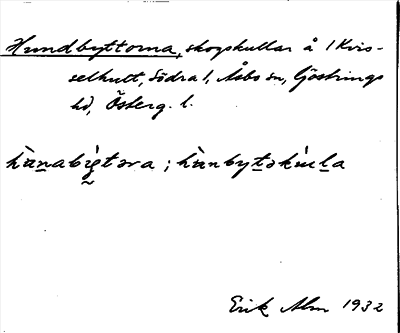 Hundbyttorna, skogskullar å 1 Kvis-
selhult, Södra 1, Åsbo sn, Göstrings
hd, Österg. l.
hùn̠abỳtəra ; hùnbyt̠əkùl̠a
Erik Alm 1932